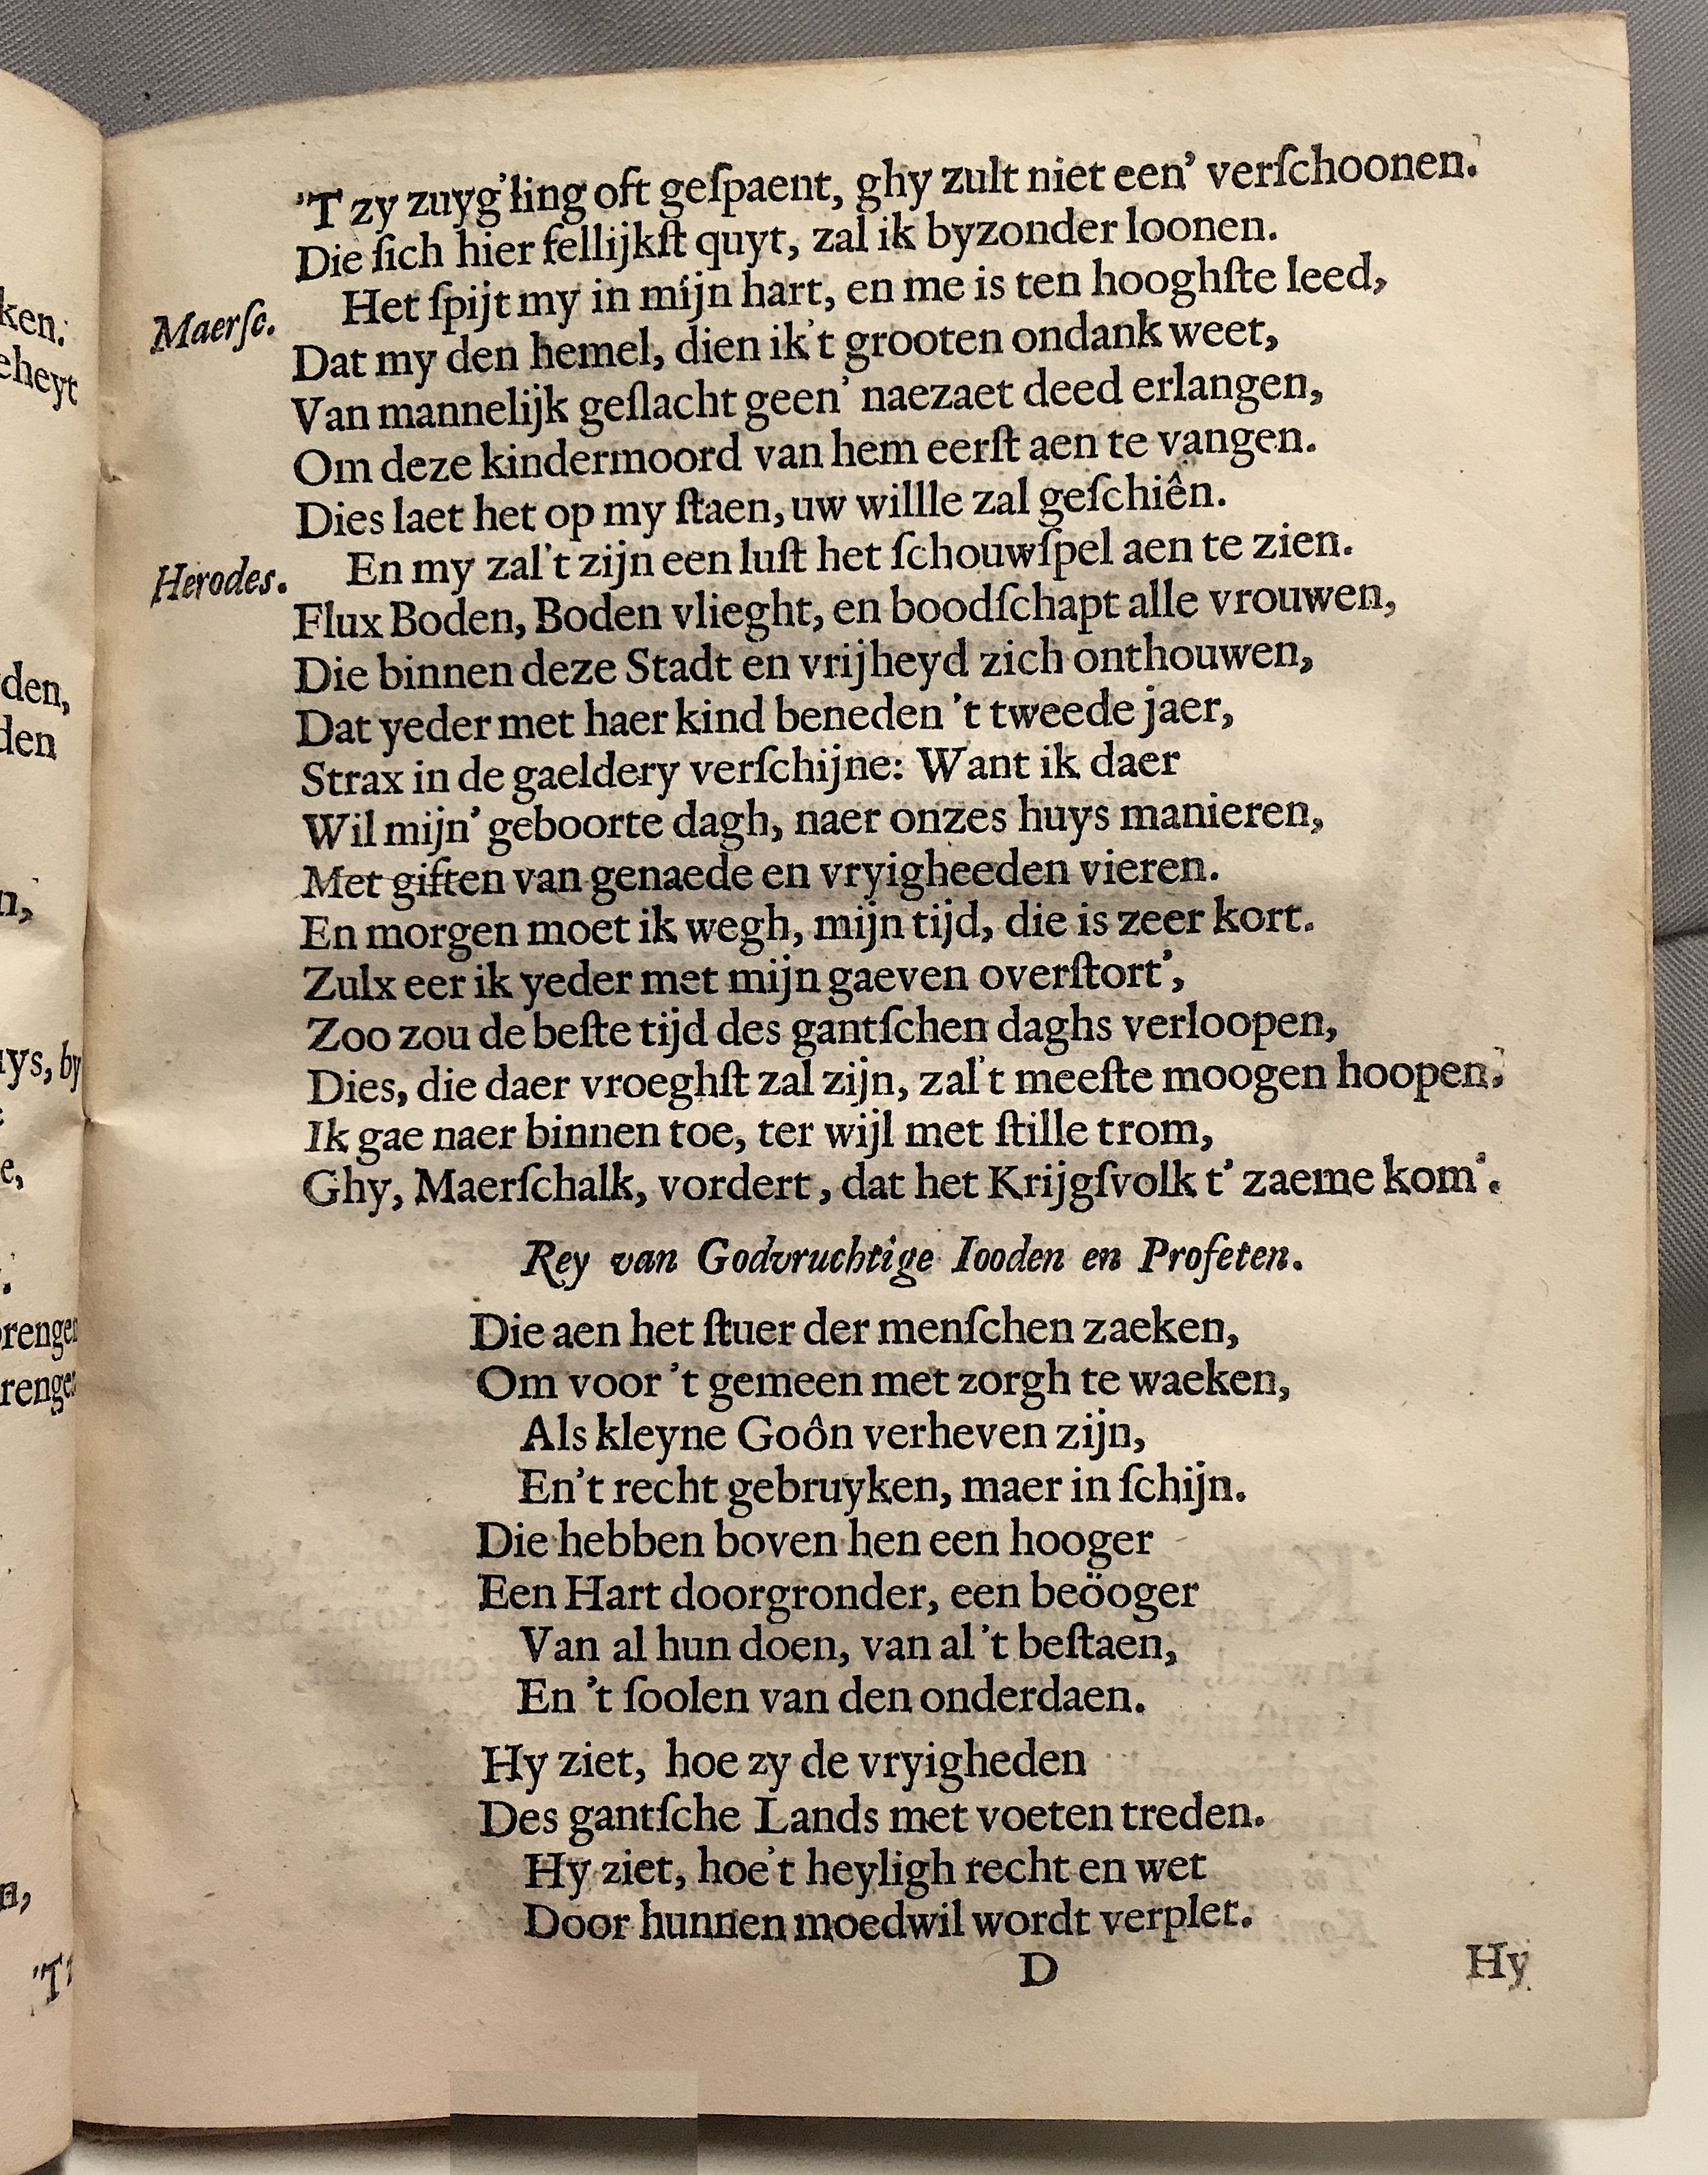 'T zy zuyg'ling oft geſpaent, ghy zult niet een' verſchoonen.
Die ſich hier fellijkſt quyt, zal ik byzonder loonen.
Maerſc. Het ſpijt my in mijn hart, en me is ten hooghſte leed,
Dat my den hemel, dien ik't grooten ondank weet,
Van mannelijk geſlacht geen' naezaet deed erlangen,
Om deze kindermoord van hem eerſt aen te vangen.
Dies laet het op my ſtaen, uw willle zal geſchiên.
Herodes. En my zal't zijn een luſt het ſchouwſpel aen te zien.
Flux Boden, Boden vlieght, en boodſchapt alle vrouwen,
Die binnen deze Stadt en vrijheyd zich onthouwen,
Dat yeder met haer kind beneden 't tweede jaer,
Strax in de gaeldery verſchijne: Want ik daer
Wil mijn' geboorte dagh, naer onzes huys manieren,
Met giften van genaede en vryigheeden vieren.
En morgen moet ik wegh, mijn tijd, die is zeer kort.
Zulx eer ik yeder met mijn gaeven overſtort',
Zoo zou de beſte tijd des gantſchen daghs verloopen,
Dies, die daer vroeghſt zal zijn, zal't meeſte moogen hoopen.
Ik gae naer binnen toe, ter wijl met ſtille trom,
Ghy, Maerſchalk, vordert, dat het Krijgſvolk t' zaeme kom'.
Rey van Godvruchtige Iooden en Profeten.
Die aen het ſtuer der menſchen zaeken,
Om voor 't gemeen met zorgh te waeken,
Als kleyne Goôn verheven zijn,
En't recht gebruyken, maer in ſchijn.
Die hebben boven hen een hooger
Een Hart doorgronder, een beöoger
Van al hun doen, van al 't beſtaen,
En 't ſoolen van den onderdaen.
Hy ziet, hoe zy de vryigheden
Des gantſche Lands met voeten treden.
Hy ziet, hoe't heyligh recht en wet
Door hunnen moedwil wordt verplet.
D Hy